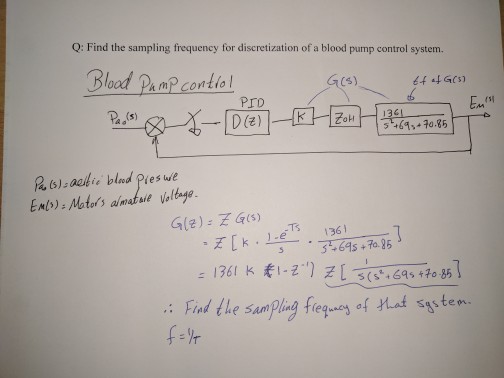 Q: Find the sampling frequency for discretization of a blood pump control system.
Blood Pump control
G(s)
tf of G(s)
PID
Pao(s)
D(z)
K
ZOH
1361
s²+69s+70.85
Em(s)
Pa(s) = aortic blood presure
Em(s) = Motor's armature Voltage.
G(z) = Z G(s)
= Z [K . 1-e^-Ts / s . 1361 / s²+69s+70.85]
= 1361 K (1-z⁻¹) Z [1 / s(s²+69s+70.85)]
∴ Find the sampling frequency of that system.
f = 1/T